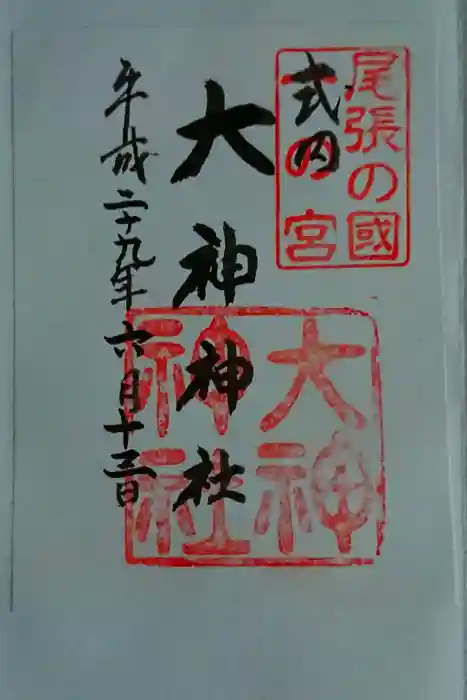 尾張の國
一の宮
式内
大神神社
大神
神社
平成二十九年六月十三日